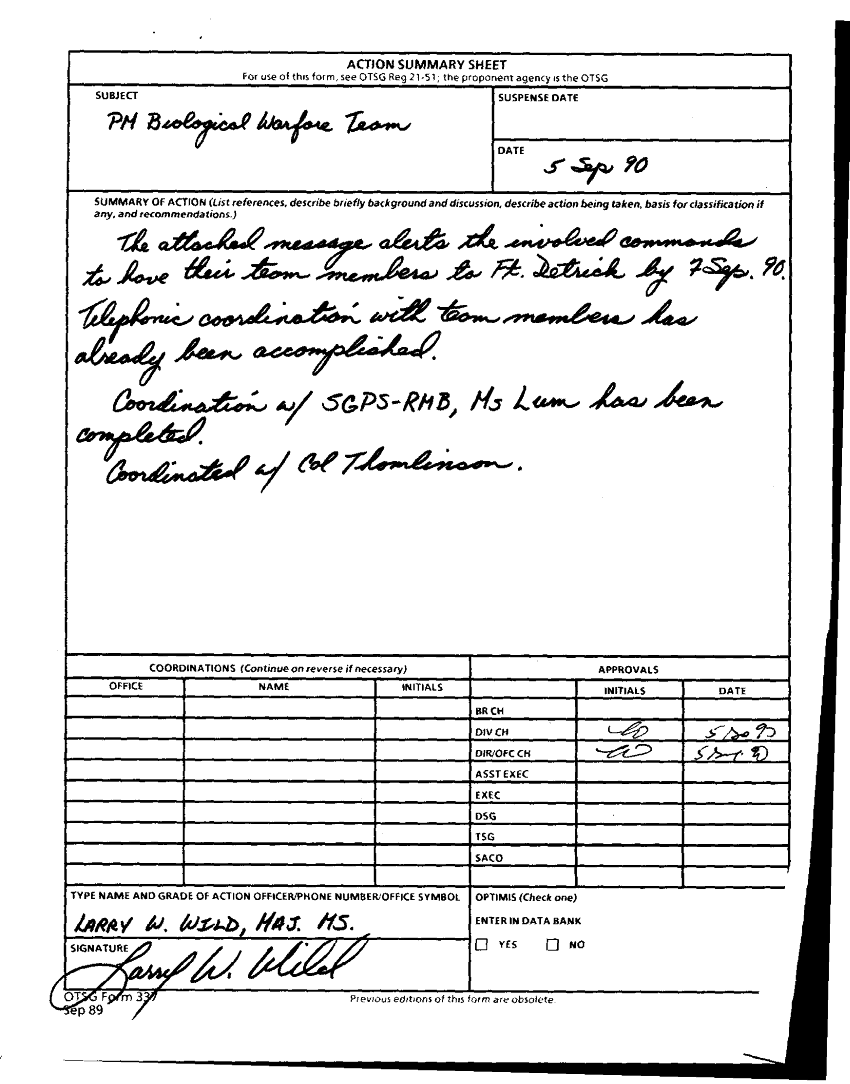 ACTION SUMMARY SHEET
For use of this form, see OTSG Reg 21-51; the proponent agency is the OTSG
SUBJECT
PM Biological Warfare Team
SUSPENSE DATE
DATE
5 Sep 90
SUMMARY OF ACTION (List references, describe briefly background and discussion, describe action being taken, basis for classification if
any, and recommendations.)
The attached message alerts the involved commands
to have their team members to Ft. Detrick by 7 Sep. 90.
Telephonic coordination with team members has
already been accomplished.
Coordination w/ SGPS-RMB, Ms Lum has been
completed.
Coordinated w/ Col Thomlinson.
COORDINATIONS (Continue on reverse if necessary)
APPROVALS
OFFICE NAME INITIALS
INITIALS DATE
BR CH
DIV CH
DIR/OFC CH
ASST EXEC
EXEC
DSG
TSG
SACO
TYPE NAME AND GRADE OF ACTION OFFICER/PHONE NUMBER/OFFICE SYMBOL
LARRY W. WILD, MAJ. MS.
OPTIMIS (Check one)
ENTER IN DATA BANK
YES NO
SIGNATURE
Larry W. Wild
OTSG Form 337
Sep 89
Previous editions of this form are obsolete.